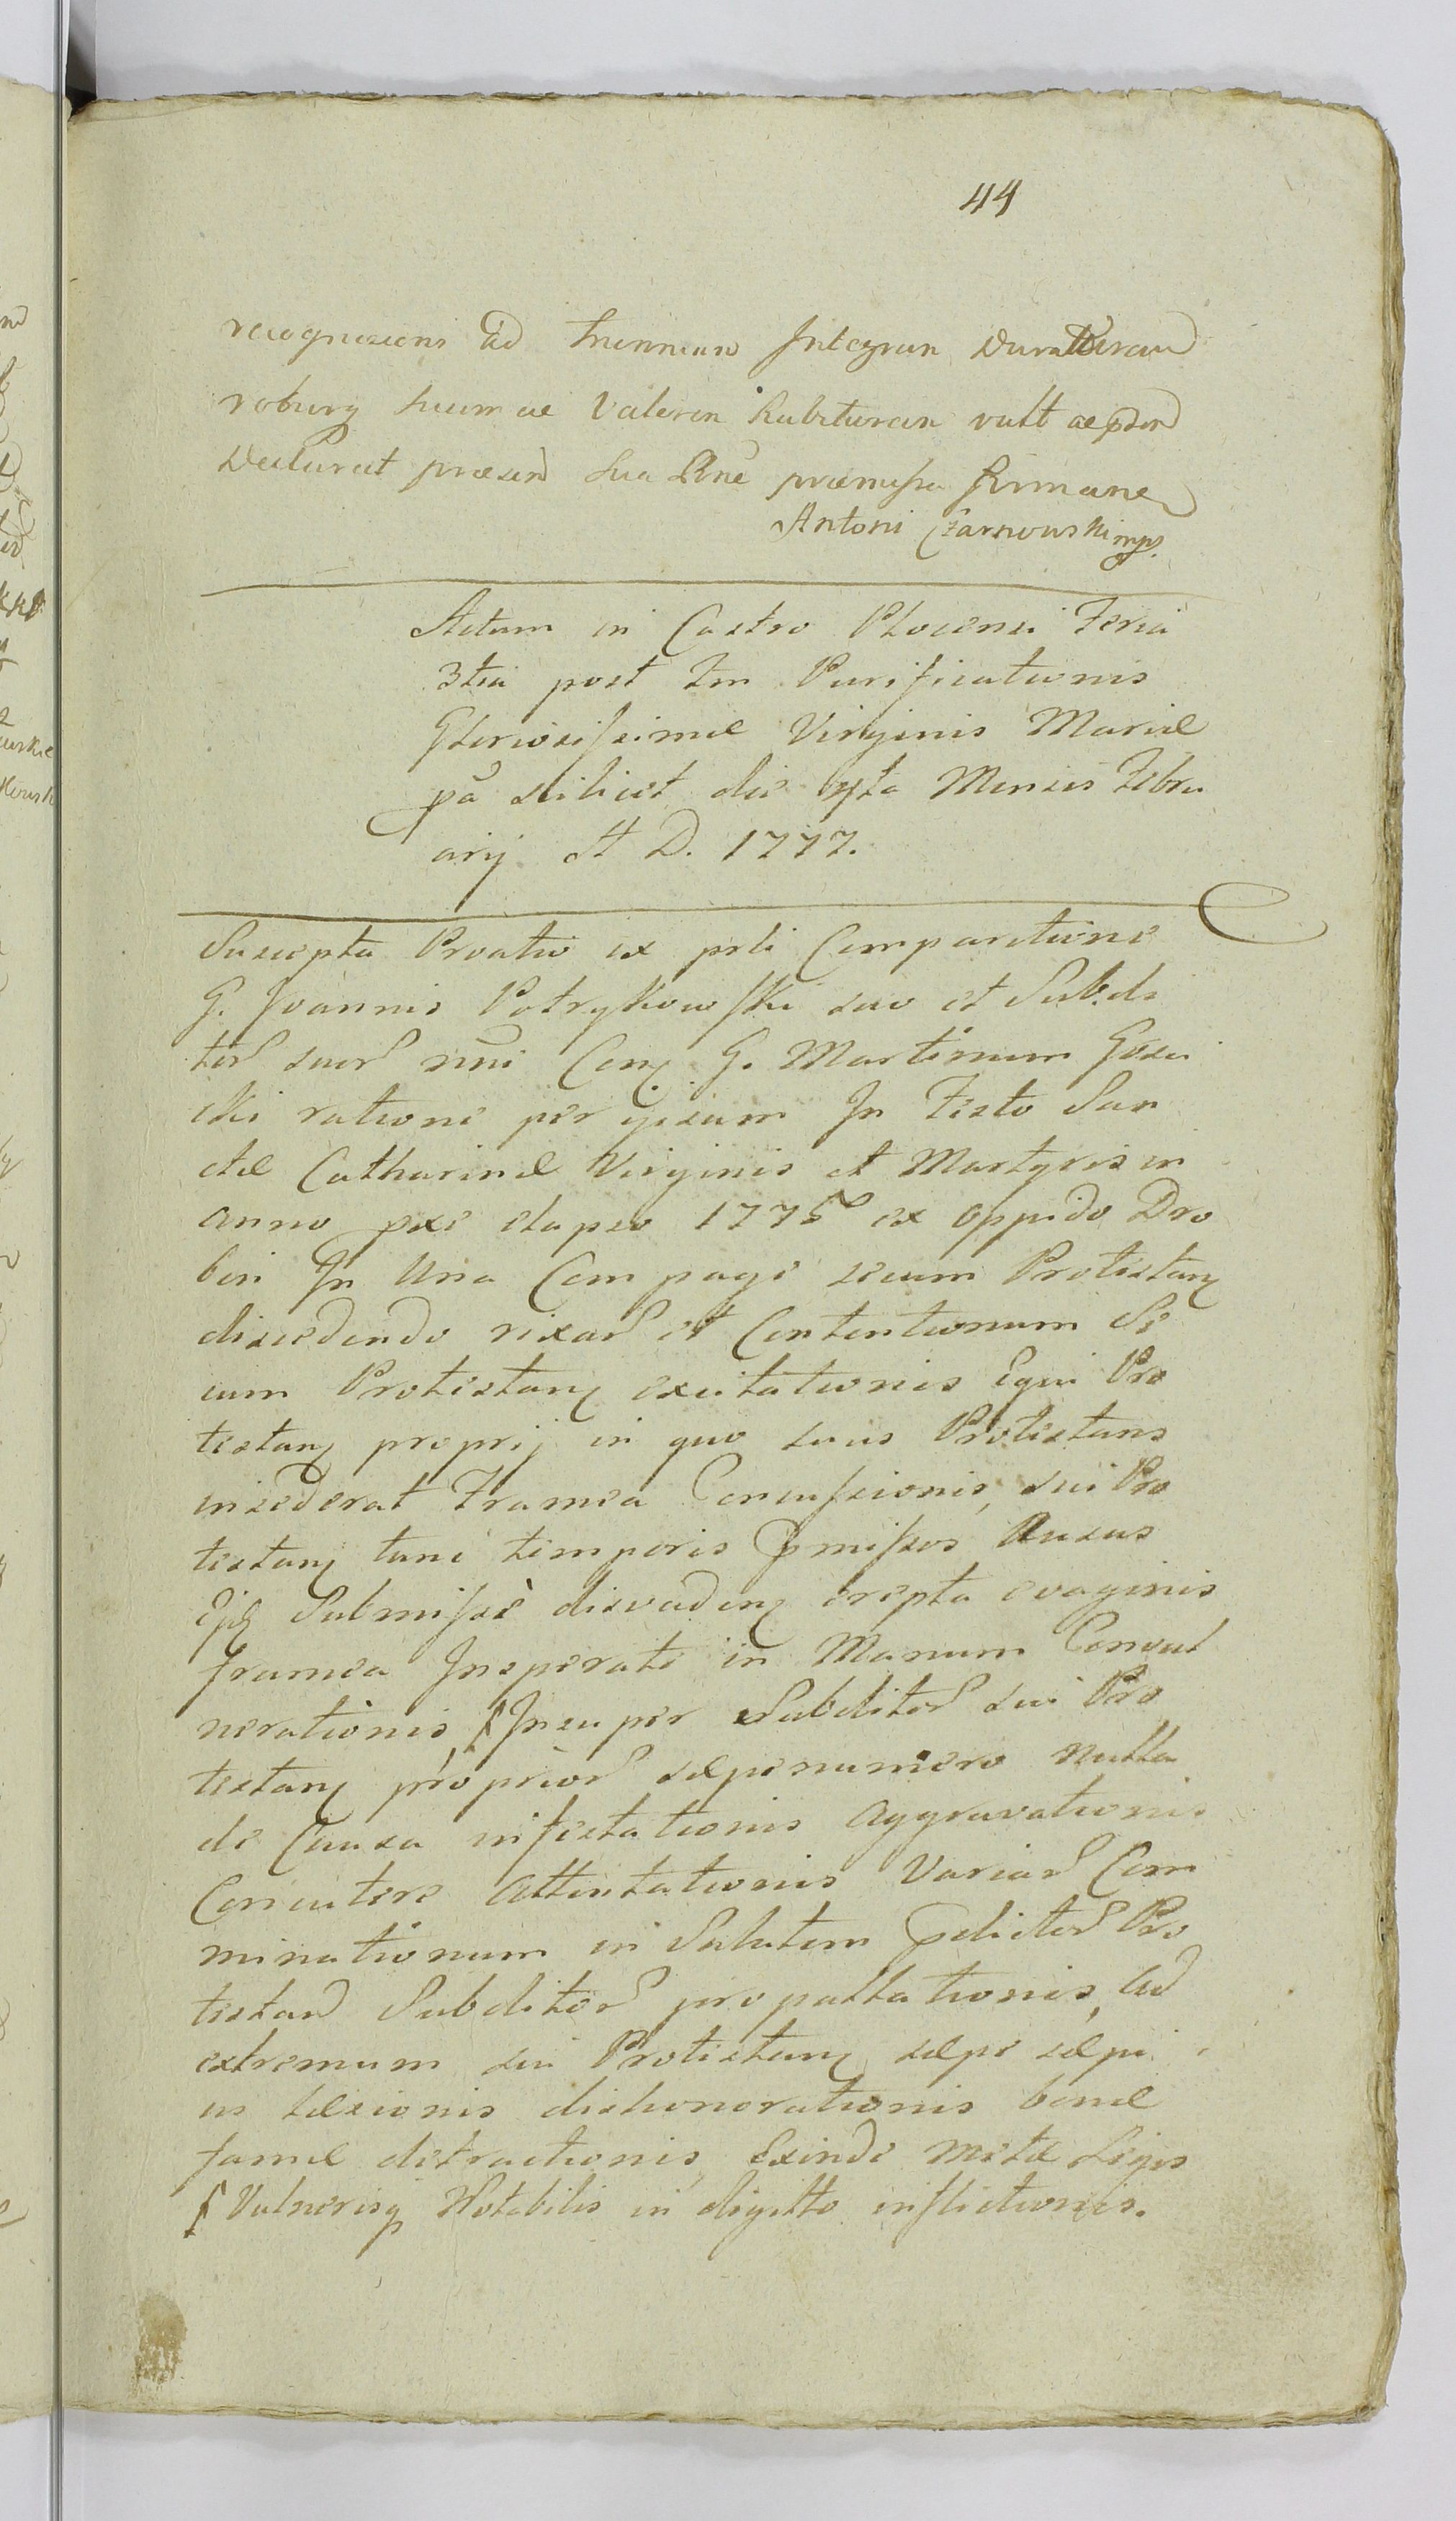 44
recognoscens ad triennium Integrum Duraturam
roburq suum ac Valorem habituram vult ac
Declarat præsen sua premissa firmane
Antoni Czarnowski mp.
Actum in Castro Plocensi Feria
3tia post Fm Purificationis
Gloriosissimæ Virginis Mariæ
pa scilicet die 4ta Mensis Febru
arij A D. 1777.
Suscepta Protio ex prli Comparitione
G. Joannis Potrykowski suo et Subdi
tor suor nni Conq G. Martinum Gosci
cki ratione per ipsum In Festo San
ctæ Catharinæ Virginis et Martyris in
anno pxe elapso 1776 ex oppido Dro
bin In Una Compage secum Protestanq
discedendo rixar et Contentionum Se
cum Protestanq excitationis Equi Pro
testanq proprij in quo suus Protestans
insederat Framea Concussionis, sui Pro
testanq tunc temporis pmissos Ausus
Ejq Submissè disvadenq erepta evaginis
framea Insperate in Manum Convul
nerationis Insuper Subditor sui Pro
testanq proprior sæpenumero nulla
de Causa infestationis Aggravationis
Concutere Attentationis Variar Com
minationum in Salutem pdictor Pro
testan Subditor propallationis, Ad
extremum sui Protestanq sæpe sæpi
us læsionis dishonorationis bonæ
famæ detractionis, Exinde metæ Legis
Vulnerisq Notabilis in digitto inflictionis.